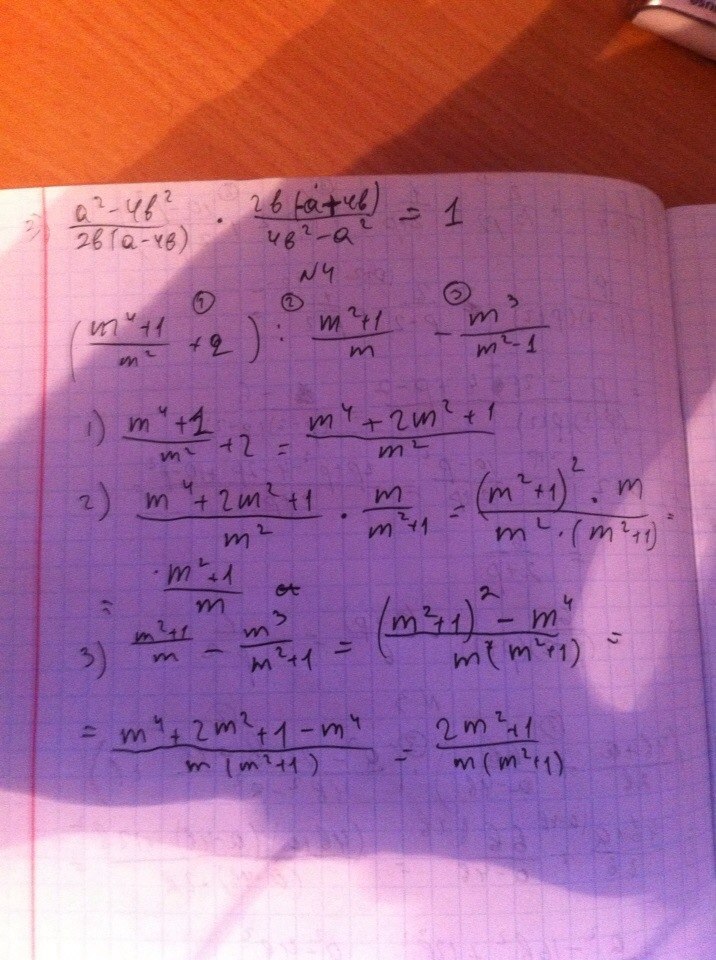 3) (a² - 4b²)/(2b(a - 4b)) · (2b(-a + 4b))/(4b² - a²) = 1
N4
((m⁴+1)/m² + 2) : (m²+1)/m - m³/(m²-1)
1) (m⁴+1)/m² + 2 = (m⁴ + 2m² + 1)/m²
2) (m⁴ + 2m² + 1)/m² · m/(m²+1) = ((m²+1)² · m)/(m² · (m²+1)) =
= (m²+1)/m
3) (m²+1)/m - m³/(m²+1) = ((m²+1)² - m⁴)/(m(m²+1)) =
= (m⁴ + 2m² + 1 - m⁴)/(m(m²+1)) = (2m²+1)/(m(m²+1))